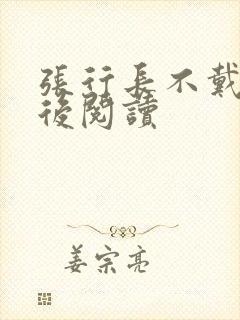 張行長不戴
後閱讀
姜宗亮